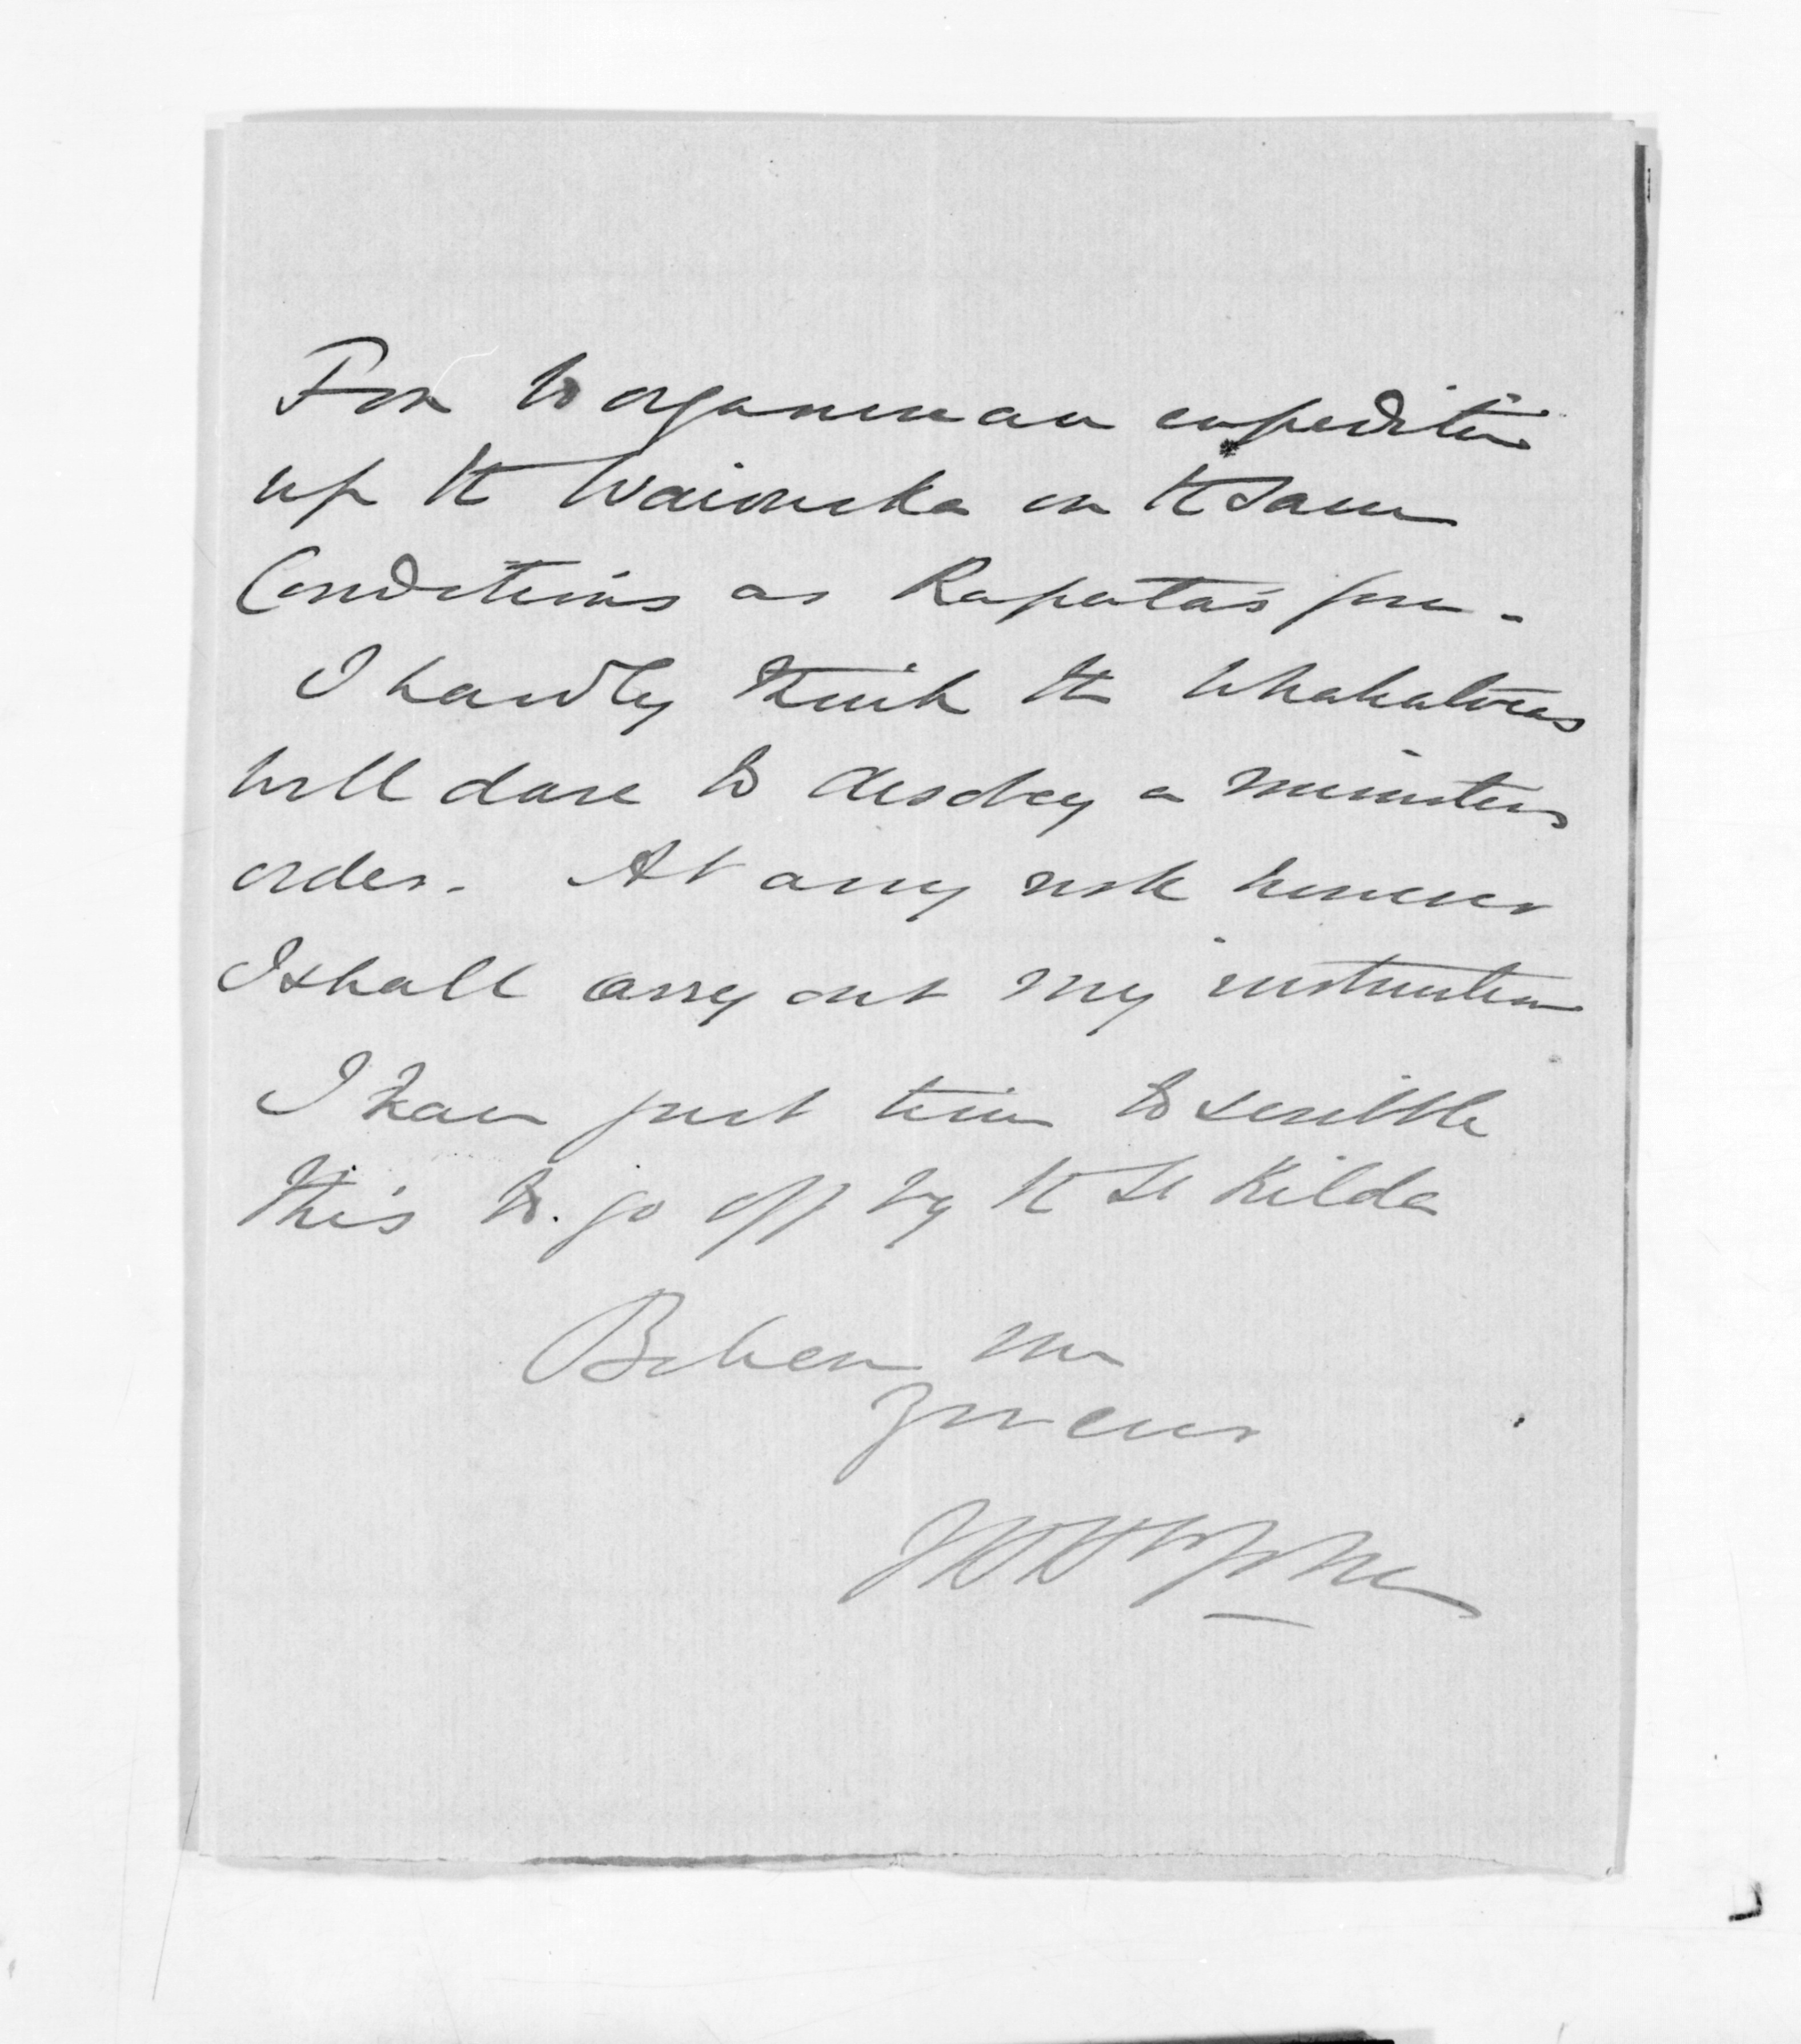 Fox to organise an expedition
up the Waioueka on the same
Conditions as Rapata's force -
I hardly think the Whakatoeas
will dare to disobey a ministers
order - At any risk however
I shall carry out my instruction
I have just time to scribble
this to go off by the St Kilda
Believe me
yours ever